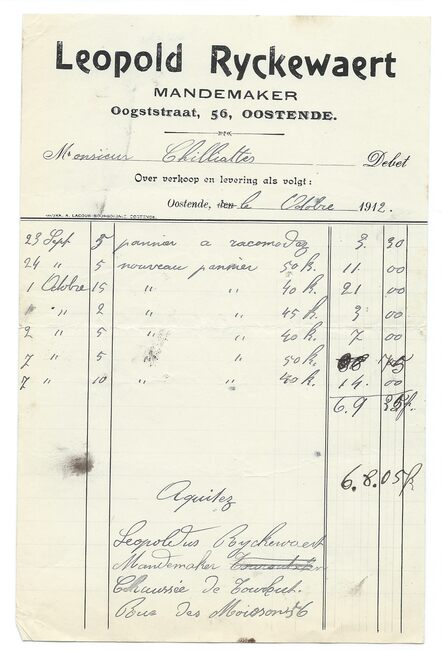 Leopold Ryckewaert
MANDEMAKER
Oogststraat, 56, OOSTENDE.
Monsieur Chilliattes Debet
Over verkoop en levering als volgt:
Oostende, den le Octobre 1912.
23 Sept 5 pannier a racomodaz 3. 20
24 " 5 nouveau pannier 50 k. 11 00
1 Octobre 15 " " 40 k. 21 00
1 " 2 " " 45 k. 3 00
2 " 5 " " 40 k. 7 00
7 " 5 " " 50 k.
7 " 10 " " 40 k. 14. 00
6.9
6.8.05f
Aquitez
Leopoldus Ryckewaert
Mandemaker
Chaussée de Tourhout.
Rue des Moissons 56